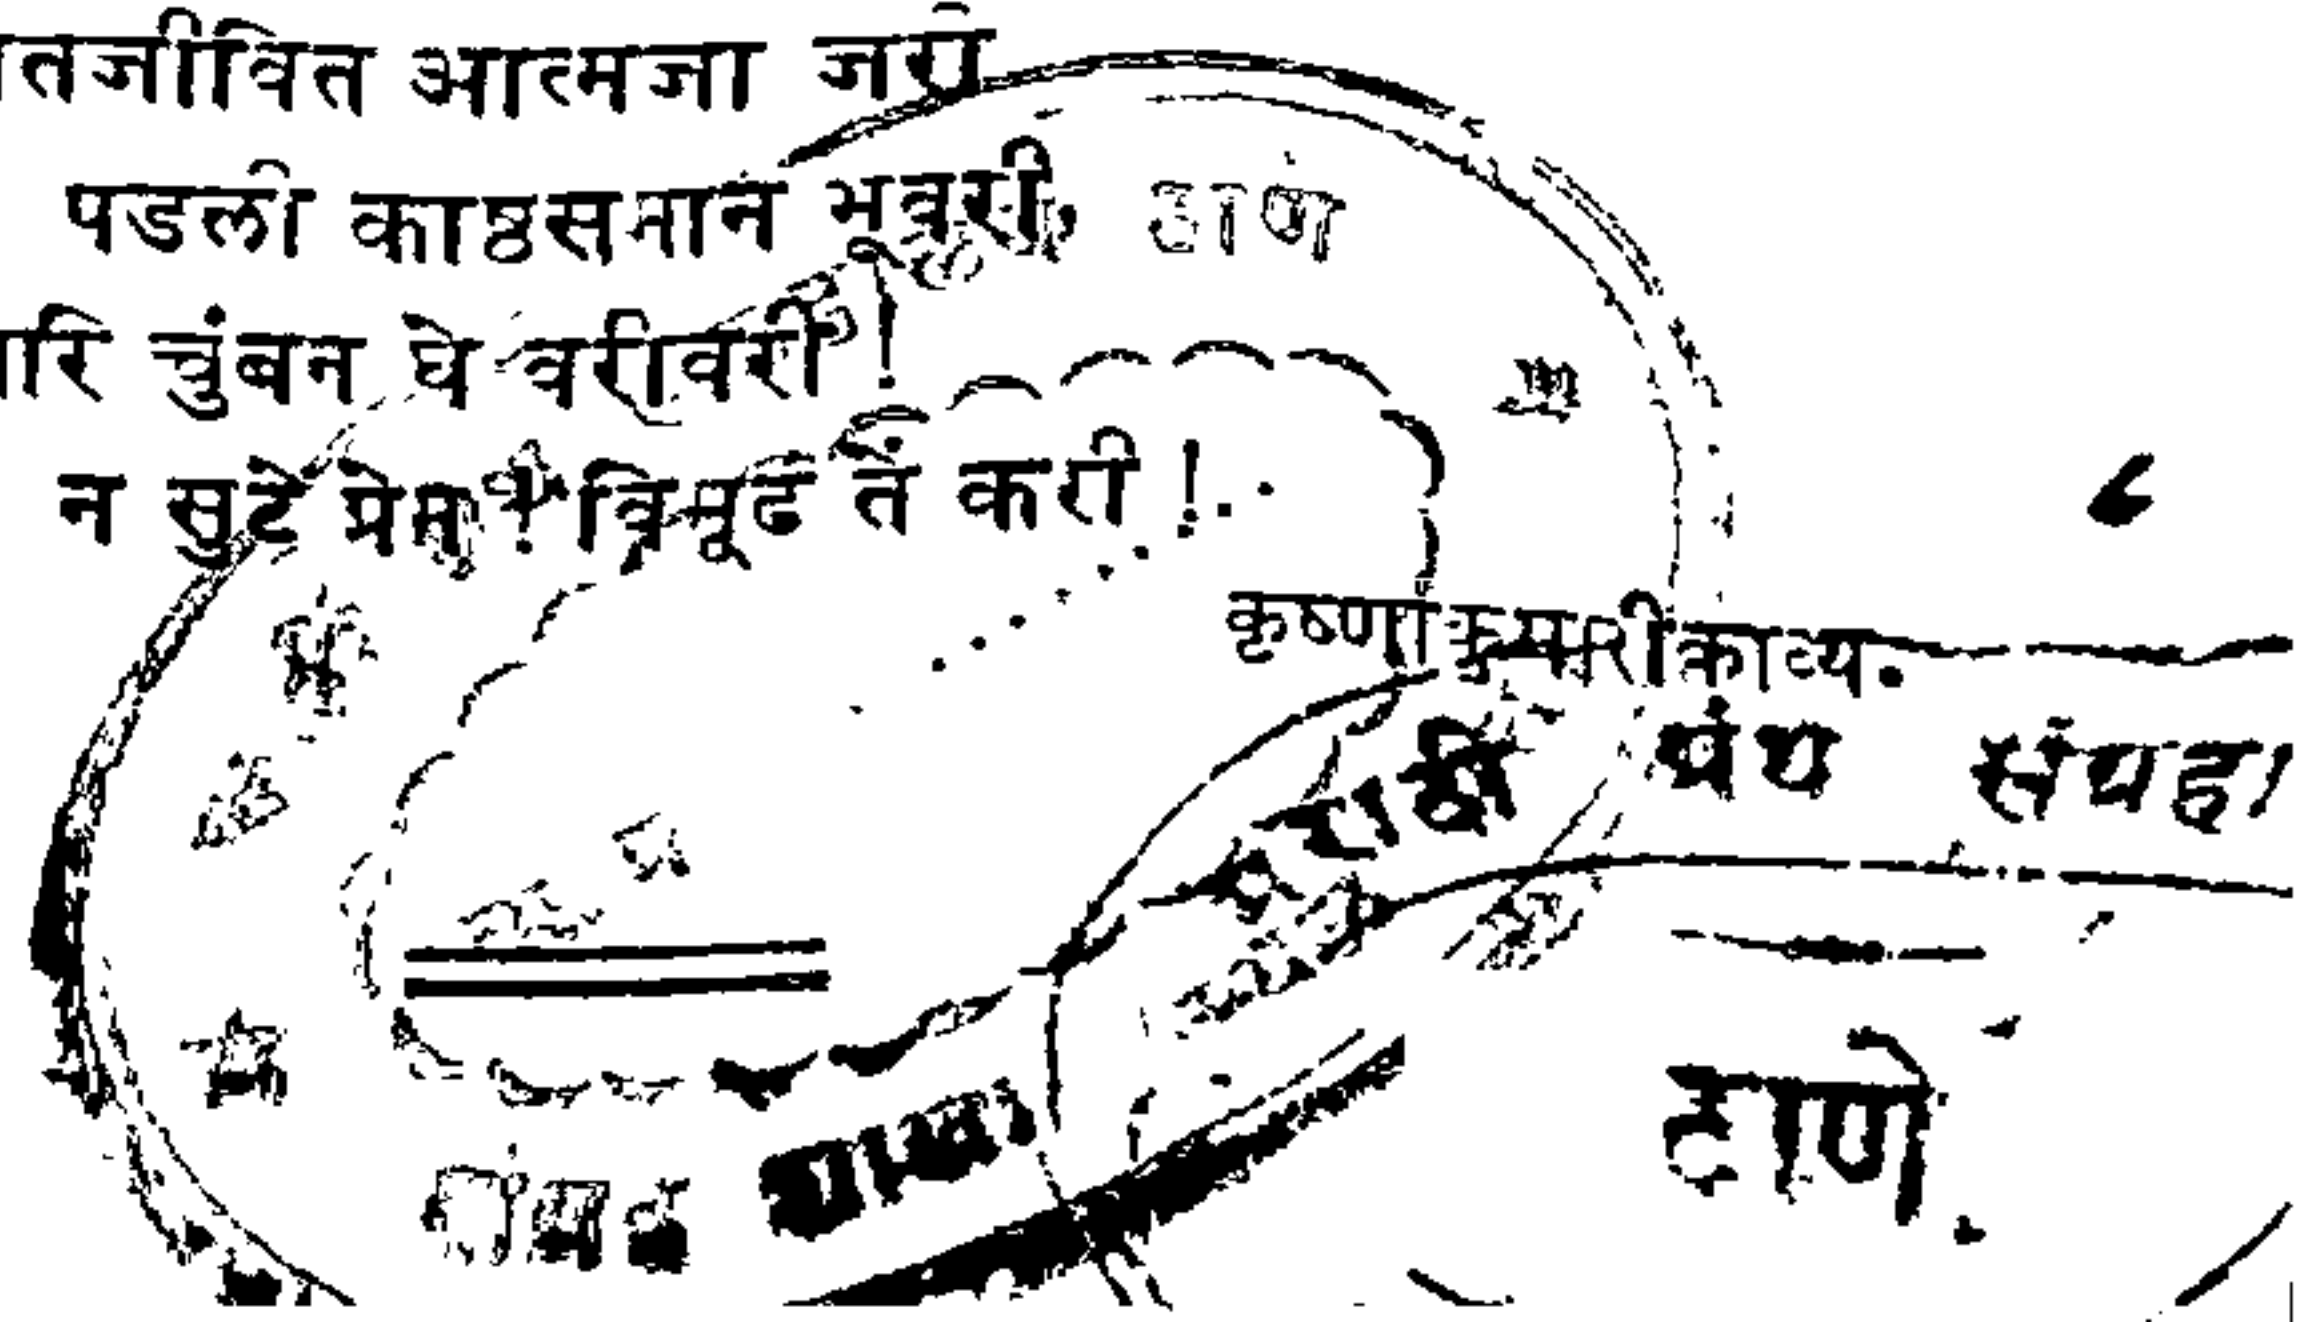 तजीवित आत्मजा जरी
पडली काष्ठसमान भूवरी,
चुंबन घे वरीवरी !
न सुटे प्रेम ! विमूढ तें करी !
८
कृष्णाकुमारीकाव्य.
मराठी ग्रंथ संग्रहा
ठाणे.